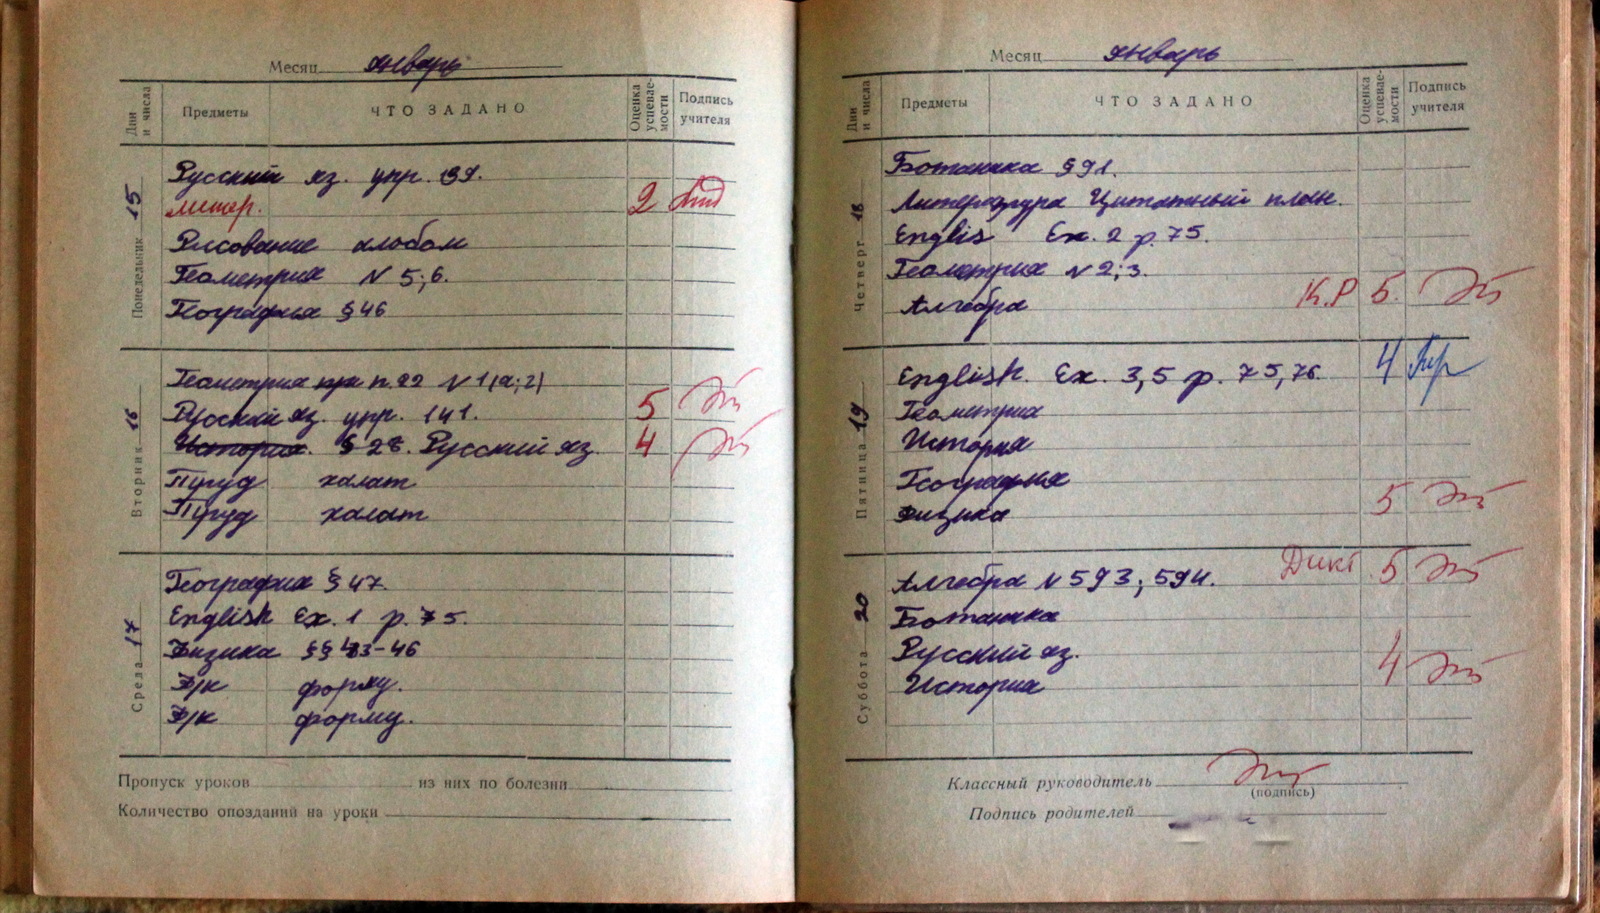 Месяц январь
Дни и числа Предметы ЧТО ЗАДАНО Оценка успеваемости Подпись учителя
Понедельник 15
Русский яз. упр. 139.
литер. 2
Рисование альбом
Геометрия N 5; 6.
География § 46
Вторник 16
Геометрия п. 22 N 1(а; г)
Русский яз. упр. 141. 5
История. § 28. Русский яз. 4
Пр труд халат
Пр труд халат
Среда 17
География § 47.
English Ex. 1 p. 75.
Физика §§ 43-46
Ф/к форму.
Ф/к форму.
Пропуск уроков из них по болезни
Количество опозданий на уроки
Месяц январь
Дни и числа Предметы ЧТО ЗАДАНО Оценка успеваемости Подпись учителя
Четверг 18
Ботаника § 91.
Литература Цитатный план.
Englis Ex. 2 p. 75.
Геометрия N 2; 3.
Алгебра К.Р 5.
Пятница 19
English. Ex. 3,5 p. 75, 76. 4
Геометрия
История
География
Физика 5
Суббота 20
Алгебра N 593; 594. Дикт 5
Ботаника
Русский яз. 4
История
Классный руководитель
(подпись)
Подпись родителей